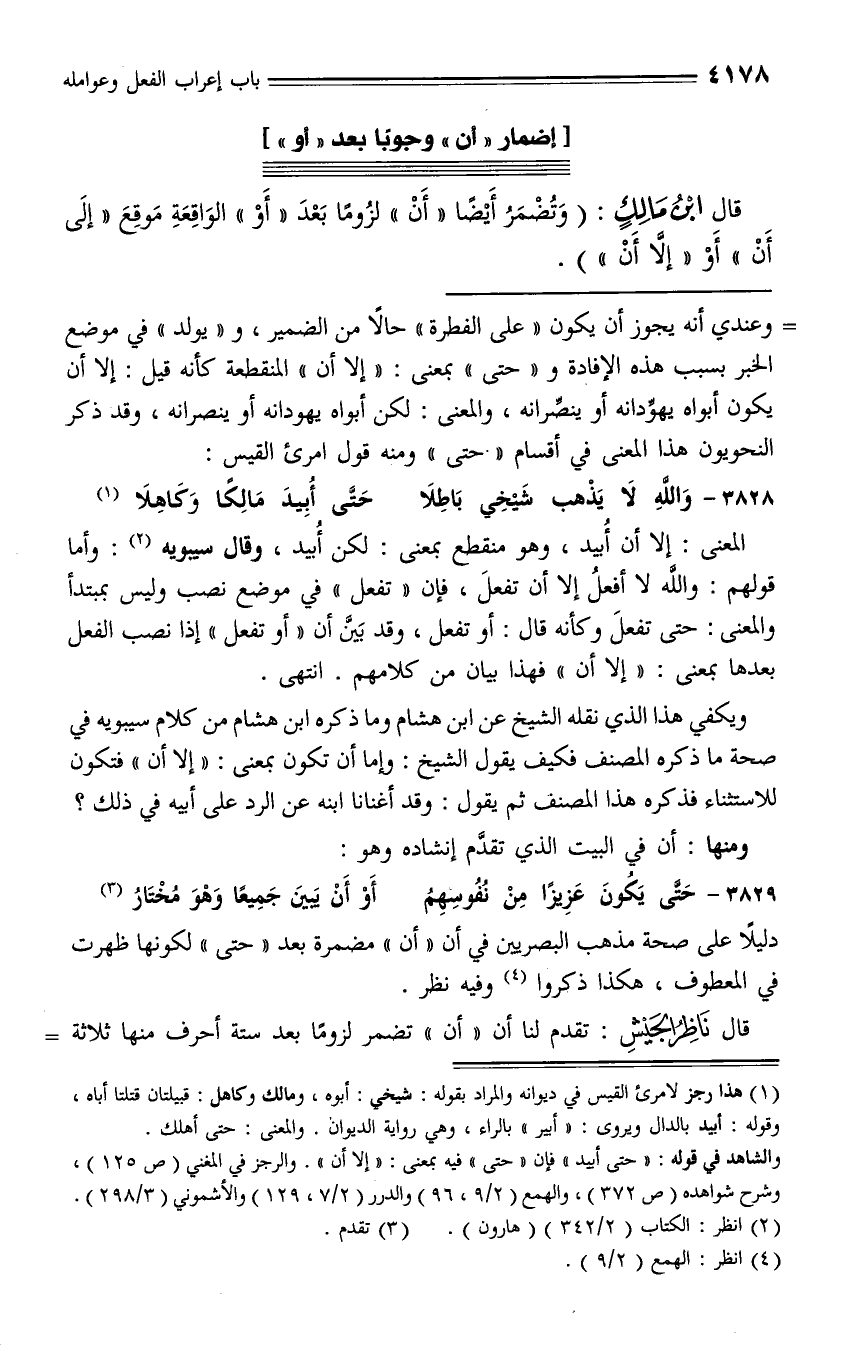 ٤١٧٨ باب إعراب الفعل وعوامله
[ إضمار « أن » وجوبًا بعد « أو » ]
قال ابْنُ مَالِكٍ : ( وَتُضْمَرُ أَيْضًا « أَنْ » لزُومًا بَعْدَ « أَوْ » الوَاقِعَةِ مَوقِعَ « إِلَى
أَنْ » أَوْ « إِلَّا أَنْ » ) .
= وعندي أنه يجوز أن يكون « على الفطرة » حالًا من الضمير ، و « يولد » في موضع
الخبر بسبب هذه الإفادة و « حتى » بمعنى : « إلا أن » المنقطعة كأنه قيل : إلا أن
يكون أبواه يهوِّدانه أو ينصِّرانه ، والمعنى : لكن أبواه يهودانه أو ينصرانه ، وقد ذكر
النحويون هذا المعنى في أقسام « حتى » ومنه قول امرئ القيس :
٣٨٢٨ - وَاللَّهِ لَا يَذْهب شَيْخِي بَاطِلَا حَتَّى أُبِيدَ مَالِكًا وَكَاهِلَا (١)
المعنى : إلا أن أُبيد ، وهو منقطع بمعنى : لكن أُبيد ، وقال سيبويه (٢) : وأما
قولهم : واللَّه لا أفعلُ إلا أن تفعلَ ، فإن « تفعل » في موضع نصب وليس بمبتدأ
والمعنى : حتى تفعلَ وكأنه قال : أو تفعل ، وقد بَيَّنَ أن « أو تفعل » إذا نصب الفعل
بعدها بمعنى : « إلا أن » فهذا بيان من كلامهم . انتهى .
ويكفي هذا الذي نقله الشيخ عن ابن هشام وما ذكره ابن هشام من كلام سيبويه في
صحة ما ذكره المصنف فكيف يقول الشيخ : وإما أن تكون بمعنى : « إلا أن » فتكون
للاستثناء فذكره هذا المصنف ثم يقول : وقد أغنانا ابنه عن الرد على أبيه في ذلك ؟
ومنها : أن في البيت الذي تقدَّم إنشاده وهو :
٣٨٢٩ - حَتَّى يَكُونَ عَزِيزًا مِنْ نُفُوسِهِمُ أَوْ أَنْ يَبِينَ جَمِيعًا وَهْوَ مُخْتَارُ (٣)
دليلًا على صحة مذهب البصريين في أن « أن » مضمرة بعد « حتى » لكونها ظهرت
في المعطوف ، هكذا ذكروا (٤) وفيه نظر .
قال نَاظِرُ الجَيْشِ : تقدم لنا أن « أن » تضمر لزومًا بعد ستة أحرف منها ثلاثة =
(١) هذا رجز لامرئ القيس في ديوانه والمراد بقوله : شيخي : أبوه ، ومالك وكاهل : قبيلتان قتلتا أباه ،
وقوله : أبيد بالدال ويروى : « أبير » بالراء ، وهي رواية الديوان . والمعنى : حتى أهلك .
والشاهد في قوله : « حتى أبيد » فإن « حتى » فيه بمعنى : « إلا أن » . والرجز في المغني ( ص ١٢٥ ) ،
وشرح شواهده ( ص ٣٧٢ ) ، والهمع ( ٩/٢ ، ٩٦ ) والدرر ( ٧/٢ ، ١٢٩ ) والأشموني ( ٢٩٨/٣ ) .
(٢) انظر : الكتاب ( ٣٤٢/٢ ) ( هارون ) . (٣) تقدم .
(٤) انظر : الهمع ( ٩/٢ ) .